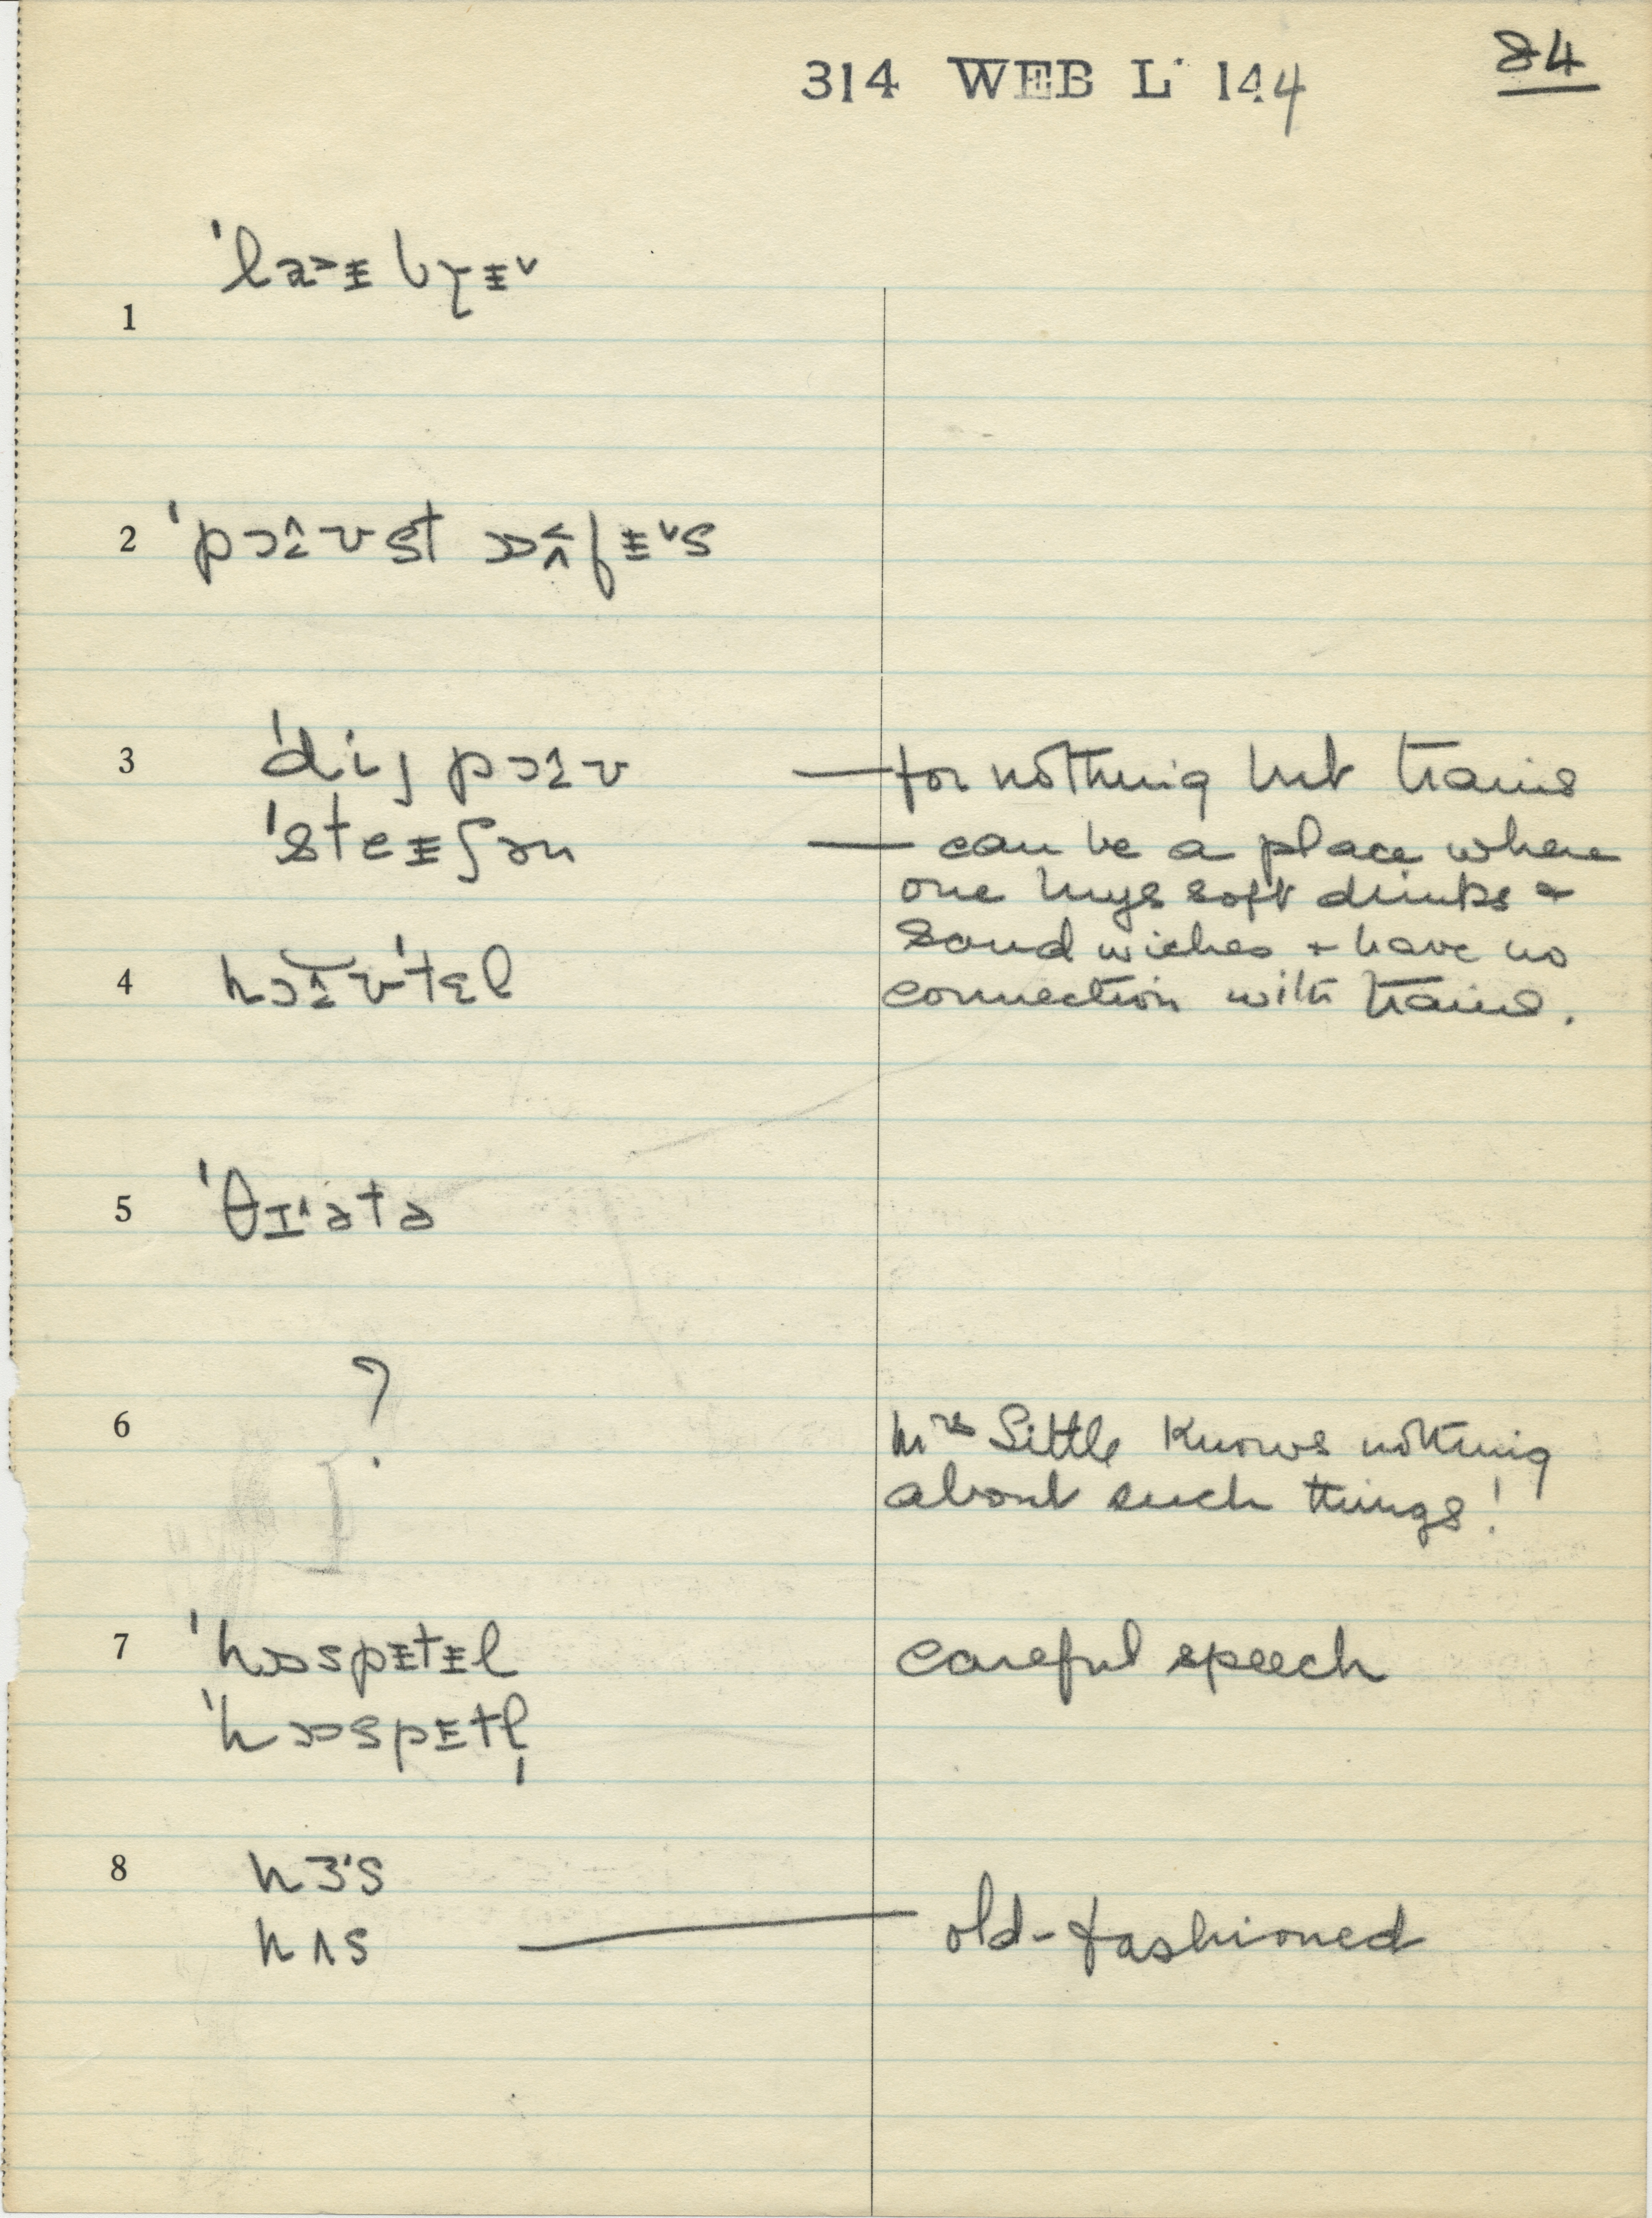 84
314 WEB L 144
1 ˈlaᵻbɣᵻ˅
2 ˈpɔʊst ɒfᵻ˅s
3 ˈdiɟpɔʊ — for nothing but trains
ˈsteᵻʃən — can be a place where
one buys soft drinks +
sandwiches + have no
4 hɔʊˈtɛl connection with trains.
5 ˈθɪətə
6 ? Mrs Little knows nothing
about such things!
7 ˈhɒspᵻtᵻl careful speech
ˈhɒspᵻtl̩
8 hɜˑs
hʌs — old-fashioned